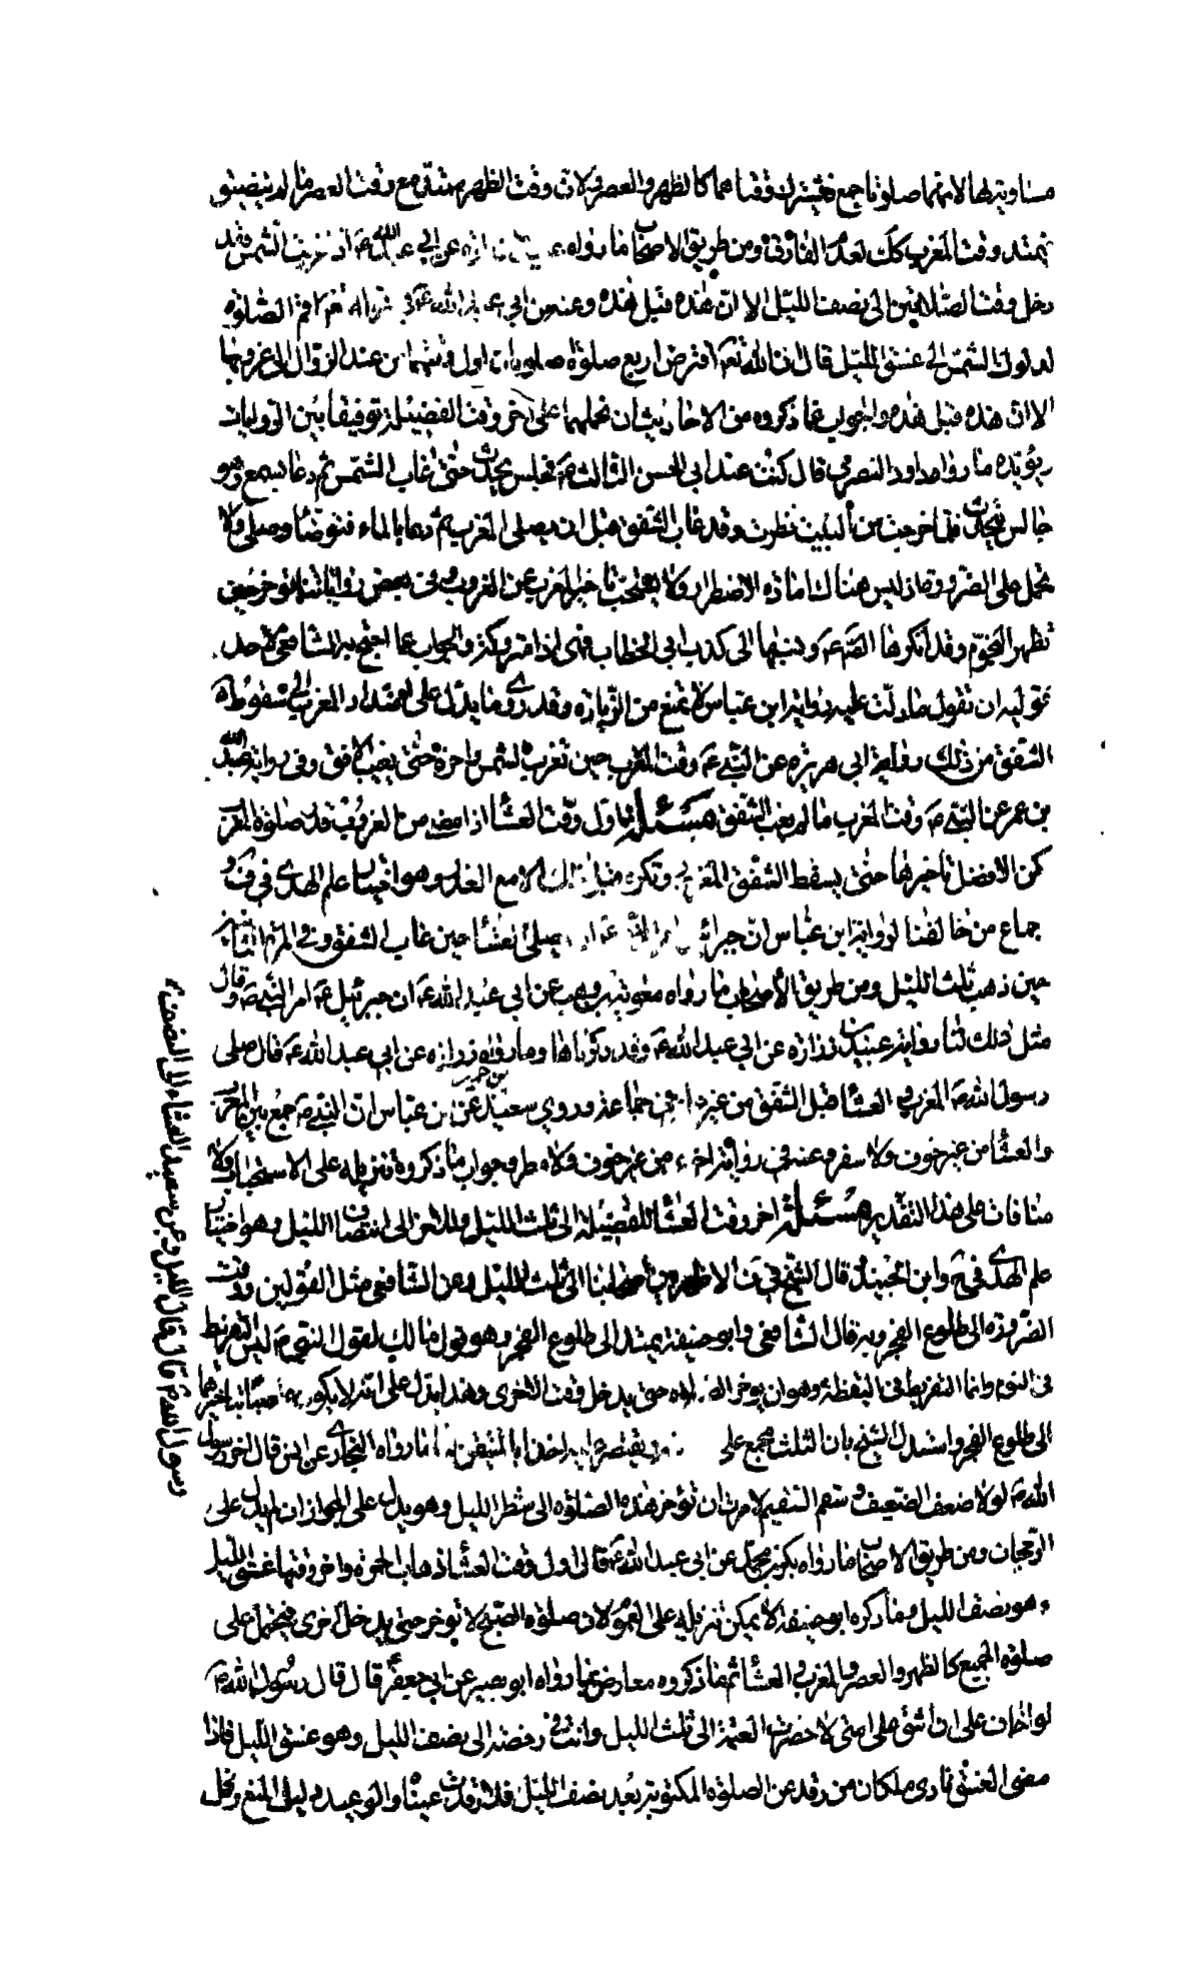 مساويتها لانهما صلوتا جمع فيشترك وقتاهما كالظهر والعصر ولان وقت الظهر ممتد مع وقت العصر ما لم يتضيق
فيمتد وقت المغرب كك لعدم الفارق ومن طريق الاصحاب ما رواه عن ابي عبد الله ع اذا غربت الشمس فقد
دخل وقت الصلاتين الى نصف الليل الا ان هذه قبل هذه وعنه عن ابي عبد الله ع في قوله تعالى اقم الصلوة
لدلوك الشمس الى غسق الليل قال ان الله تعالى افترض اربع صلوات اول وقتهما من عند الزوال الى غروبها
الا ان هذه قبل هذه والجواب عما ذكروه من الاحاديث ان نحملها على اخر وقت الفضيلة توفيقا بين الروايات
ويؤيده ما رواه داود الصرمي قال كنت عند ابي الحسن الثالث ع فجلس يحدث حتى غاب الشمس ثم دعا بشمع وهو
جالس يتحدث فلما خرجت من البيت نظرت وقد غاب الشفق قبل ان يصلى المغرب ثم دعا بالماء فتوضأ وصلى ولا
يحمل على الضرورة اذ ليس هناك مادة الاضطرار ولا يستحب تاخير المغرب عن الغروب وفي بعض رواياتنا يؤخر حتى
تظهر النجوم وقد انكرها الائمة ع ونسبها الى كذب ابي الخطاب فهي اذا متروكة والجواب عما احتج به الشافعي لاحد
قوليه ان نقول ما دلت عليه رواية ابن عباس لا تمنع من الزيادة وقد روي ما يدل على امتداد المغرب الى سقوط
الشفق من ذلك رواية ابي هريرة عن النبي ص وقت المغرب حين تغرب الشمس واخره حتى يغيب الافق وفي رواية عبد الله
بن عمر عن النبي ص وقت المغرب ما لم يغب الشفق مسئلة اول وقت العشا اذا مضى من الغروب قدر صلوة المغرب
لكن الافضل تاخيرها حتى يسقط الشفق المغربي وتكره قبل ذلك الا مع العذر وهو اختيار علم الهدى في
جماع من خالفنا لرواية ابن عباس ان جبرائيل صلى العشا حين غاب الشفق وفي المرة الثانية
حين ذهب ثلث الليل ومن طريق الاصحاب ما رواه معوية بن وهب عن ابي عبد الله ع ان جبرئيل ع امر النبي ص وقال
مثل ذلك لنا رواية عبيد بن زرارة عن ابي عبد الله ع وقد ذكرناها وما رواه زرارة عن ابي عبد الله ع قال صلى
رسول الله ص المغرب والعشا قبل الشفق من غير علة في جماعة وروي سعيد بن جبير عن ابن عباس ان النبي ص جمع بين المغرب
والعشا من غير خوف ولا سفر وعنه في رواية اخرى من غير خوف ولا مطر وجواب ما ذكروه تنزيله على الاستحباب ولا
منافاة على هذا التقدير مسئلة اخر وقت العشا للفضيلة الى ثلث الليل وللاجزاء الى انتصاف الليل وهو اختيار
علم الهدى في وابن الجنيد وقال الشيخ في الاظهر من اصحابنا الى ثلث الليل وعن الشافعي مثل القولين ووقت
الضرورة الى طلوع الفجر وبه قال الشافعي وابو حنيفة يمتد الى طلوع الفجر وهو قول مالك لقول النبي ص ليس التفريط
في النوم وانما التفريط في اليقظة وهو ان يؤخر الصلوة حتى يدخل وقت الاخرى وهذا يدل على انه لا يكون تاخيرها
الى طلوع الفجر واستدل الشيخ بان الثلث مجمع عليه فيقتصر عليه اخذا بالمتيقن لنا ما رواه البخاري عن انس قال اخر رسول
الله ص لولا ضعف الضعيف وسقم السقيم لامرت ان تؤخر هذه الصلوة الى شطر الليل وهو يدل على الجواز ان لم يدل على
الرجحان ومن طريق الاصحاب ما رواه بكر بن محمد عن ابي عبد الله ع قال اول وقت العشا ذهاب الحمرة واخر وقتها غسق الليل
وهو نصف الليل وما ذكره ابو حنيفة لا يمكن تنزيله على العموم لان صلوة الصبح لا تؤخر حتى يدخل اخرى فيحمل على
صلوة الجمع كالظهر والعصر والمغرب والعشا ثم ما ذكروه معارض بما رواه ابو بصير عن ابي جعفر ع قال قال رسول الله ص
لولا اخاف على ان اشق على امتى لاخرت العتمة الى ثلث الليل وانت في رخصة الى نصف الليل وهو غسق الليل فاذا
مضى الغسق نادى ملكان من رقد عن الصلوة المكتوبة بعد نصف الليل فلا رقدت عيناه والوعيد دليل المنع ونحمل
رسول الله ص قال ثم قال الليل وعن سعيد العشاء الى نصف